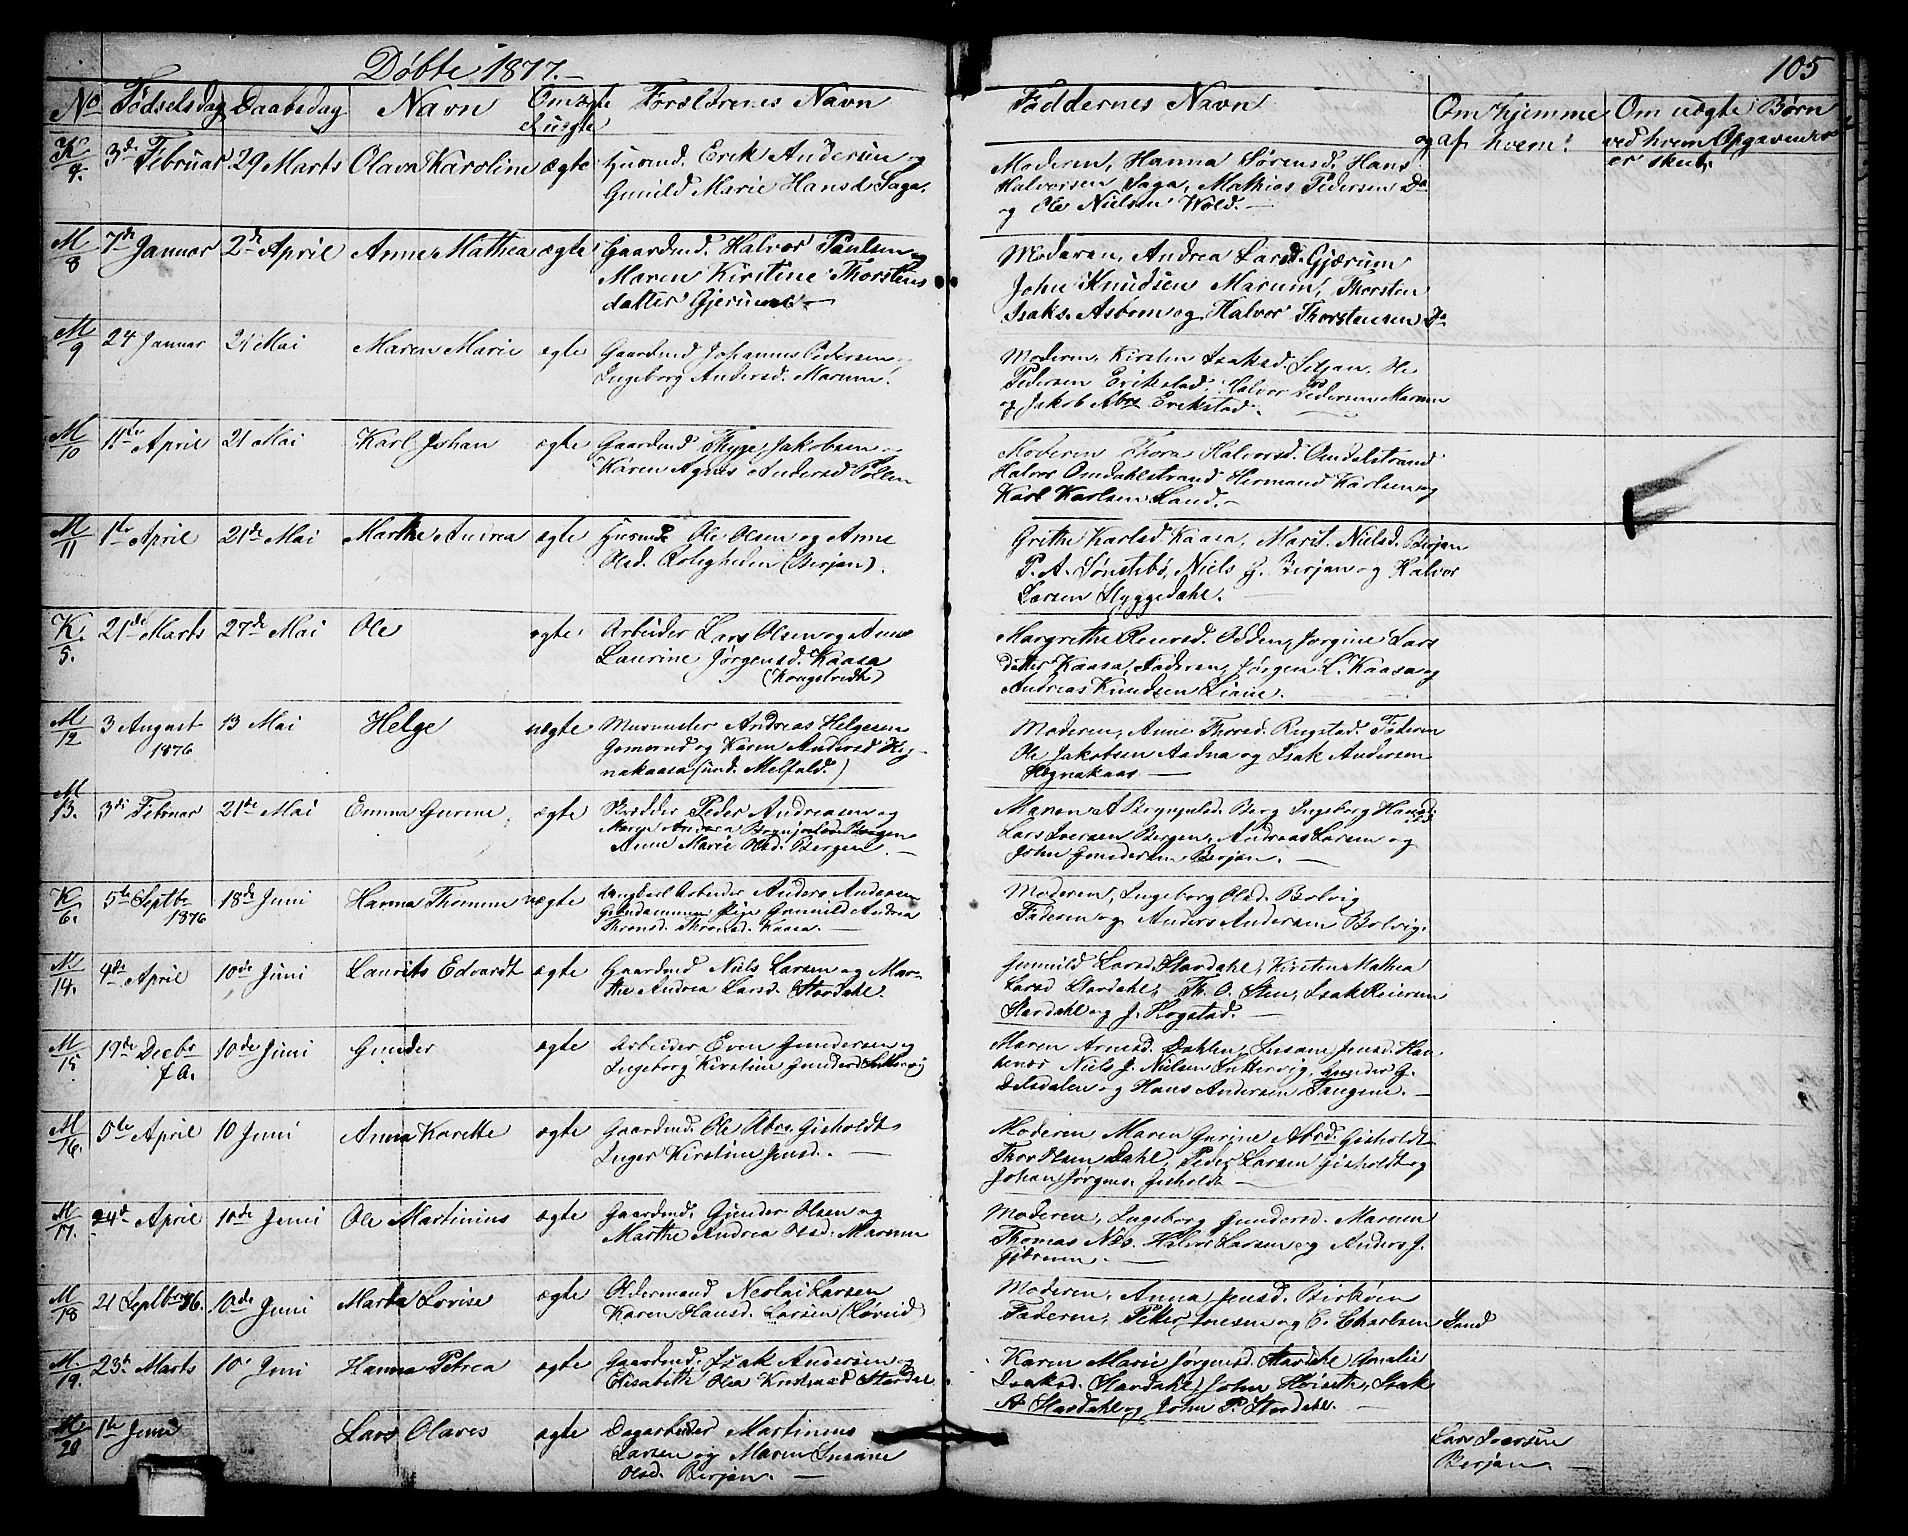 Døbte 1877.
105
No Fødselsdag Daabsdag Navn Om ægte Forældrenes Navn Faddernes Navn Om hjemme Om uægte Børn
el. uægte og af hvem: ved hvem Opgavende
er skeet.
K/4. 3de Februar 29 Marts Olava Karoline ægte Husmd. Erik Andersen og
Gunild Marie Hansd. Saga.
Moderen, Hanna Sørensd. Hans
Halvorsen Saga, Mathias Pedersen Do
og Ole Nielsen Wold.
M/8 7de Januar 2de April Anne Mathea ægte Gaardmd. Halvor Paulsen og
Maren Kirstine Thorstens
datter Gjerum
Moderen, Andrea Larsd. Gjærum
John Knudsen Marum, Thorsten
Isaks. Asbom og Halvor Thorstensen Do
M/9 24 Januar 21 Mai Maren Marie ægte Gaardmd Johannes Pedersen
Ingeborg Andersd. Marum.
Moderen, Kirsten Isaksd. Seljan, Ole
Pedersen Erikstad, Halvor Pedersen Marum
og Jakob Abrs Erikstad.
M/10 11te April 21 Mai Karl Johan ægte Gaardmd Thyge Jakobsen og
Karen Agnes Andersd Pollen
Moderen Thora Halvorsd. Omdalstrand
Halvor Omdahlstrand Hermand Karlsen og
Karl Karlsen Sand.
M/11 1te April 21de Mai Marthe Andrea ægte Husmd Ole Olsen og Anne
Olsd. Roligheden (Berjan).
Grethe Karlsd Kaasa, Marit Nielsd. Berjan
P. A. Sønstebø, Niels G. Berjan og Halvor
Larsen Styggedahl.
K./5. 21de Marts 27de Mai Ole ægte Arbeider Lars Olsen og Anne
Laurine Jørgensd. Kaasa
(Kongstvedt)
Margrethe Reiersd. Odden, Jørgine Lars
datter Kaasa, Faderen, Jørgen L. Kaasa og
Andreas Knudsen Liane.
M/12 3 August 13 Mai Helge uægte Murmester Andreas Helgesen
1876 Gomsrud og Karen Andersd Hig-
nakaasa (und. Melfald.)
Moderen, Anne Thorsd. Rugstad. Faderen
Ole Jakobsen Aadna og Isak Andersen
Hegnakaas
M/13. 3di Februar 21de Mai Emma Gurine ægte Skrædder Peder Andreasen og
Maren Andrea Brynjulsd. Bergen
Anne Marie Olsd. Bergen.
Maren A Brynjulsd. Berg Ingeborg Hansd.
Lars Iversen Bergen, Andreas Larsen og
John Gundersen Berjan.
K/6. 5te Septbr 18de Juni Hanna Thomine uægte Ungkarl Arbeider Anders Andersen
1876 Pige Gunild Andrea
Thronsd. Kaasa.
Moderen, Ingeborg Olsd. Bolvig
Faderen og Anders Andersen Bolvig.
M/14. 4de April 10de Juni Laurits Edvardt ægte Gaardmd Niels Larsen og Mar-
the Andrea Larsd. Stordahl.
Gunnild Larsd. Stordahl, Kirsten Mathea
Larsd Stordahl, Th. O. Sten, Isak Reiersen
Stordahl og J. Hogstad.
M/15 19de Decbr 10de Juni Gunder ægte Arbeider Even Gundersen og
f. A. Ingeborg Kirstine Gundersd
Maren Arnesd. Dahlen, Susane Jensd. Han-
Niels J. Nielsen Luttervig, Gunder G.
Dalsdalen og Hans Andersen Tangene.
M/16. 5te April 10 Juni Anna Karette ægte Gaardmd. Ole Abrs. Gisholdt
Inger Kirstine Jensd.
Moderen Maren Gurine Absd. Gisholdt
Thor Olsen Dahl, Peder Larsen Gisholdt og
Johan Jørgens. Gisholdt
M/17. 24d April 10de Juni Ole Martinius ægte Gaardmd. Gunder Olsen og
Marthe Andrea Olsd. Marum
Moderen, Ingeborg Gundersd. Marum
Thomas Næs. Halvor Larsen og Anders J.
Gjerum.
M/18 21 Septbr 76. 10de Juni Marta Lovise ægte Oldermand Nicolai Larsen
Karen Hansd. Larsen (Løveid)
Moderen, Anna Jensd. Birkven
Faderen, Peter Jensen og E. Charlsen Sand
M./19. 23de Marts 10 Juni Hanna Petrea ægte Gaardmd. Isak Andersen og
Elisabeth Olea Knudsd Stordal
Karen Marie Jørgensd. Stordahl, Amalie
Isaksd. Stordahl, John Høiseth, Isak
A Stordahl og John P. Stordahl.
M/20 1te Juni Lars Olaves ægte Dagarbeider Martinius
Larsen og Maren Susane
Olsd. Berjan.
Lars Iversen
Berjan.